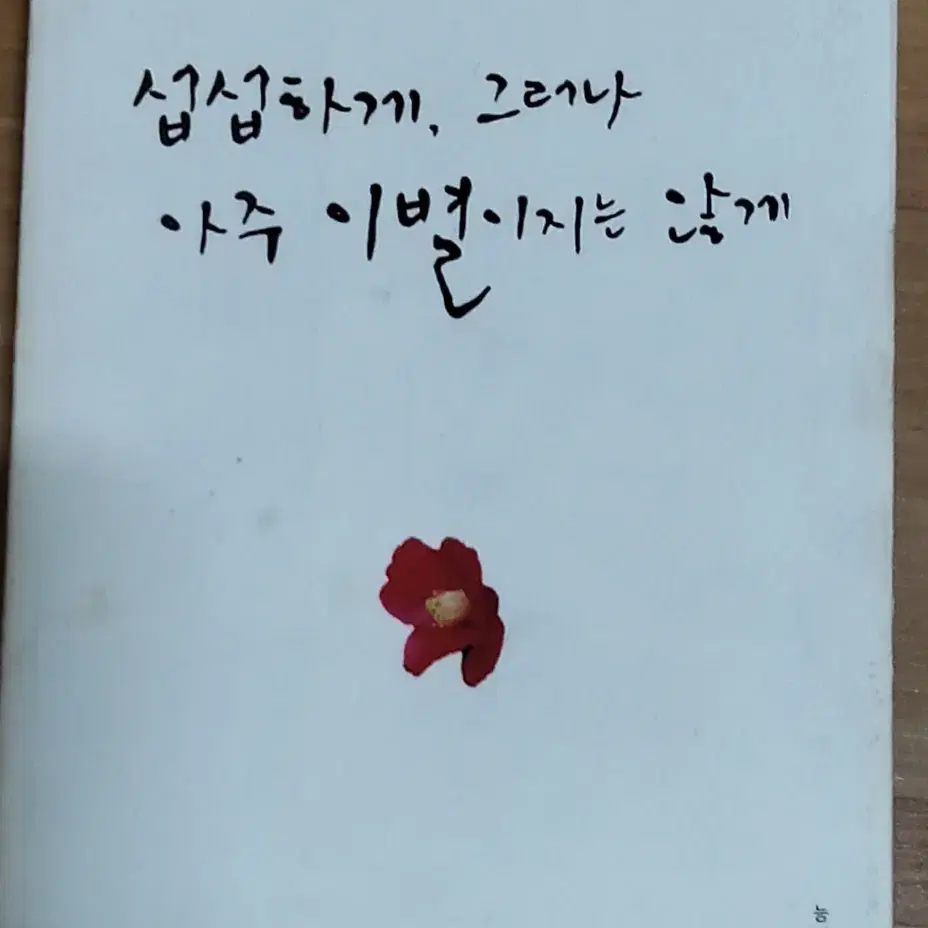 섭섭하게, 그러나
아주 이별이지는 않게